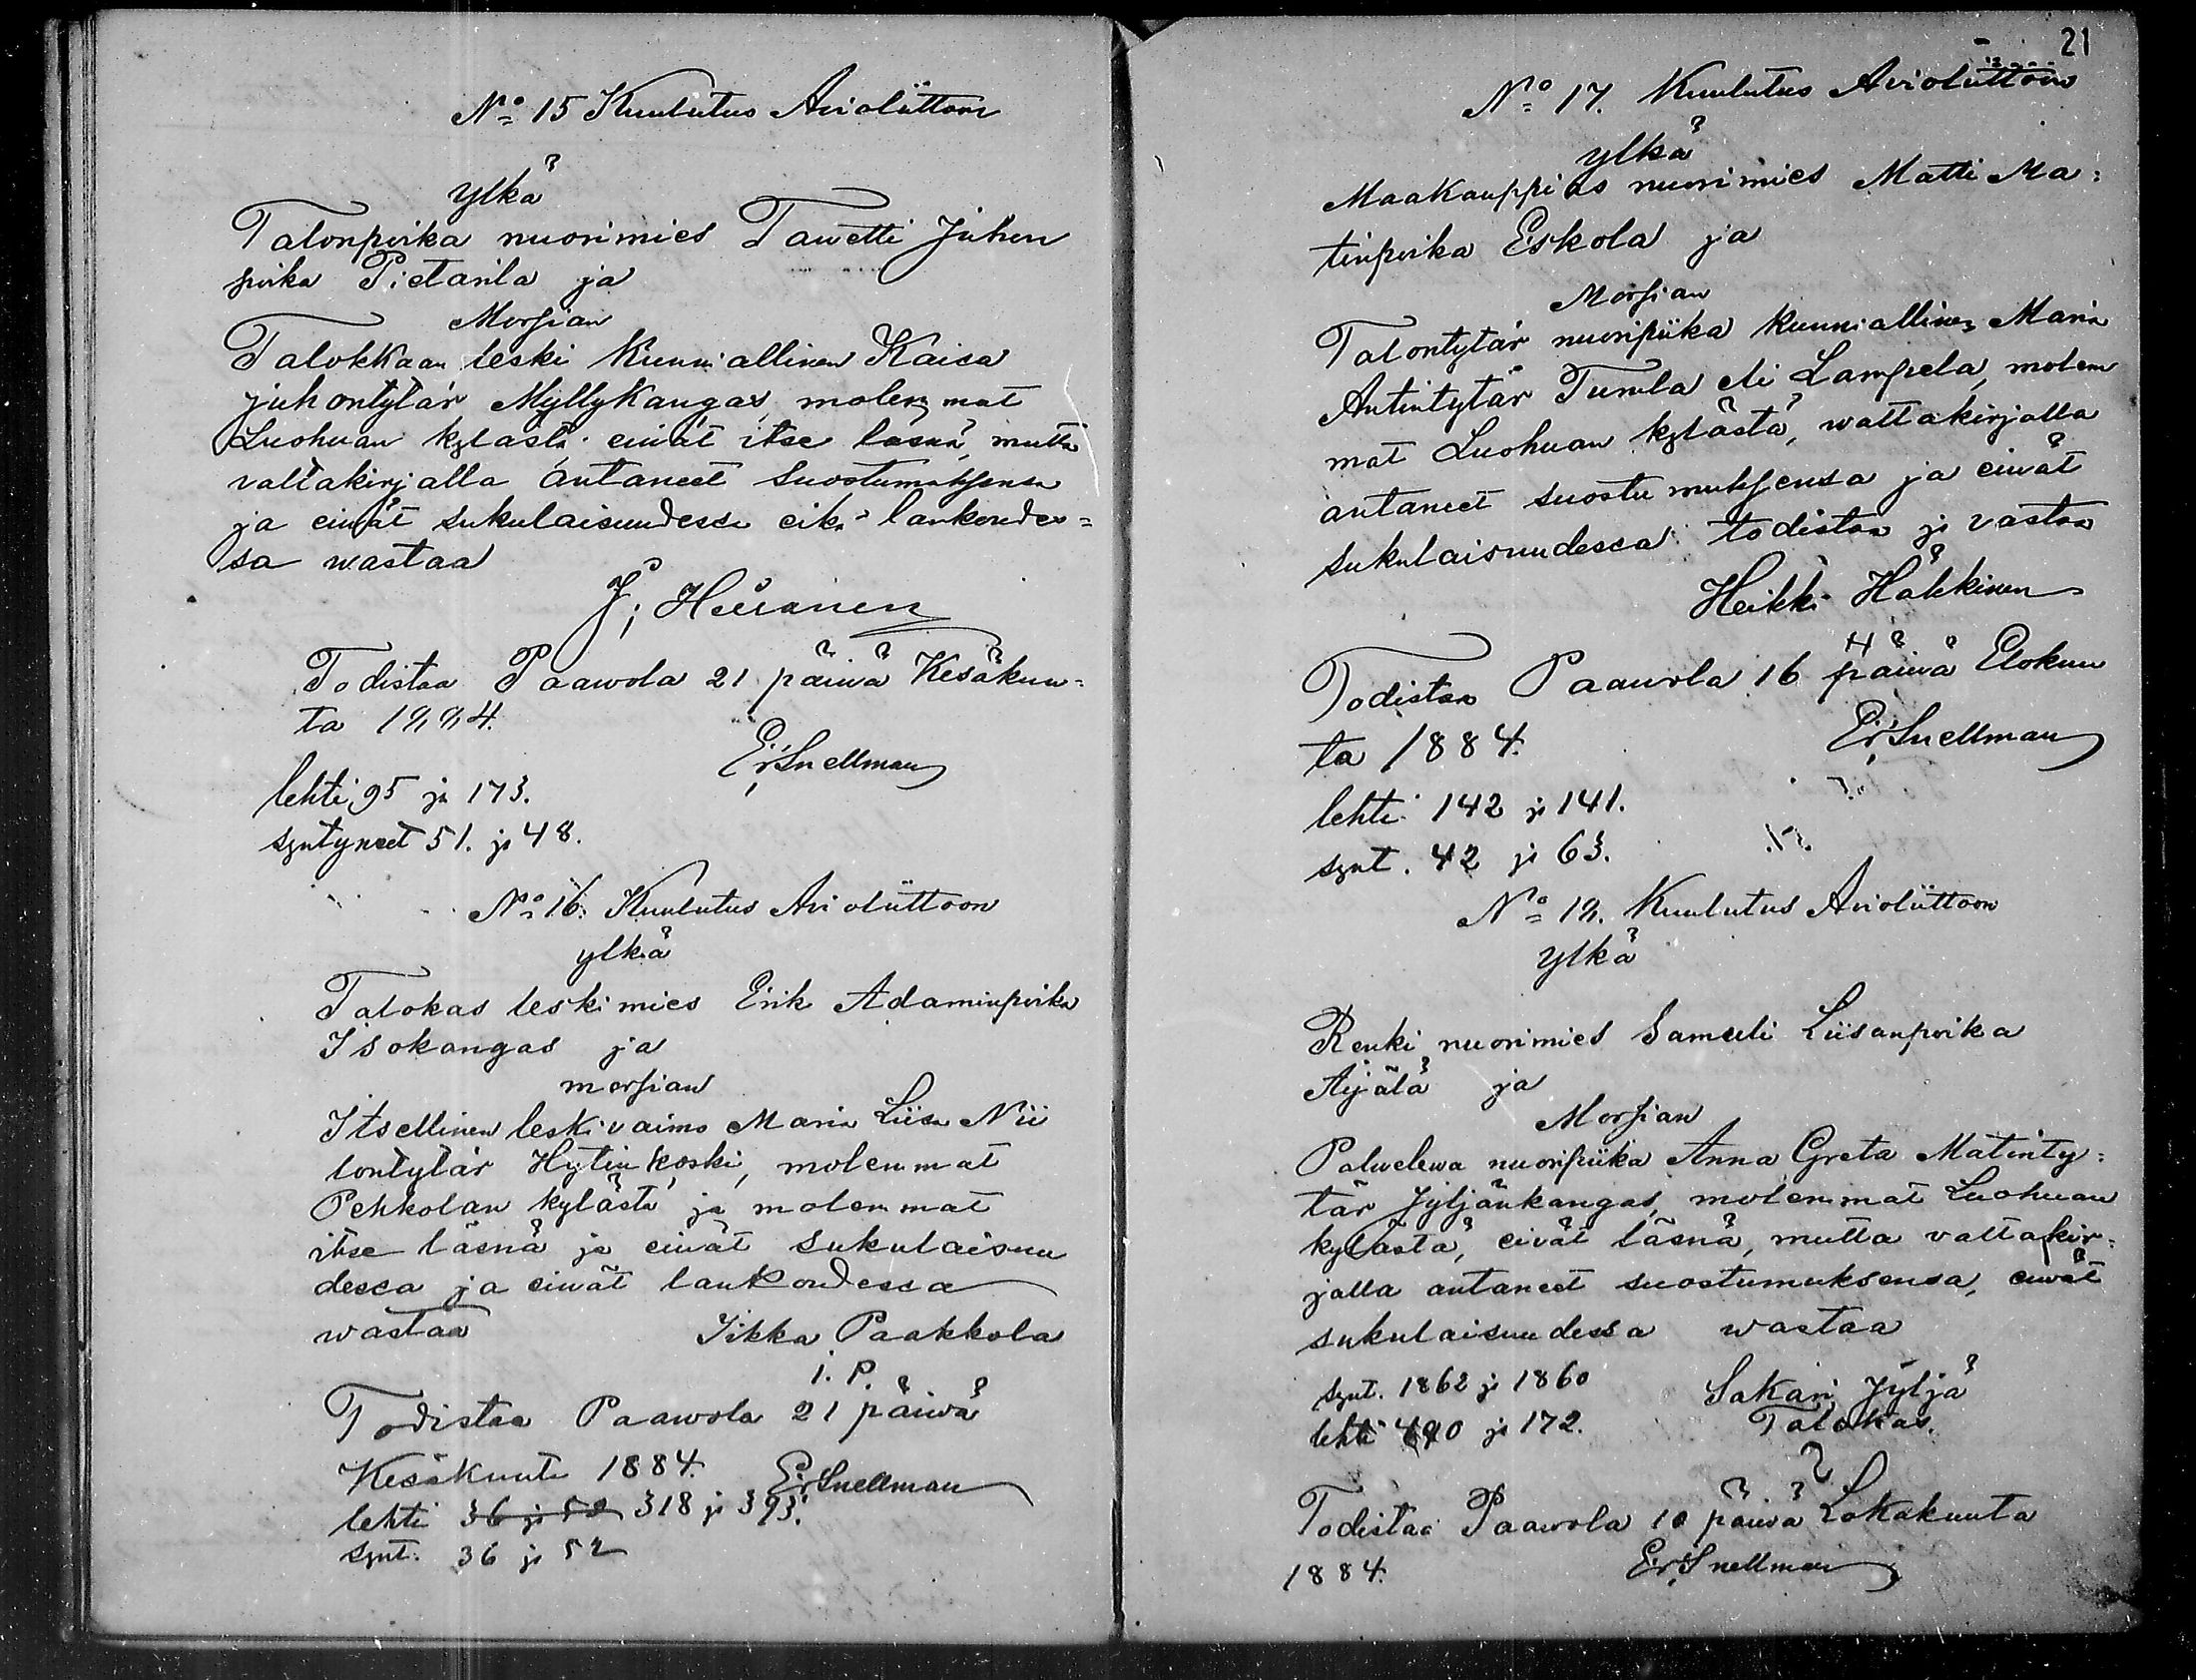 No 15 Kuulutus Avioliittoon
ylkä
Talonpoika nuorimies Tawetti Juhon
poika Pietarila ja
Morsian
Talokkaan leski Kunniallinen Kaisa
Juhontytär Myllykangas, molemmat
Luohuan kylästä eiwät itse läsnä, mutta
valtakirjalla antaneet Suostumuksensa
ja eiwät sukulaisuudessa eikä lankoudes=
sa wastaa
J; Hiisanen
Todistaa Paawola 21 päiwä Kesäkuu=
ta 1884.
Er; Snellman
lehti 95 ja 173.
syntyneet 51. ja 48.
No 16: Kuulutus Avioliittoon
ylkä
Talokas leskimies Erik Adaminpoika
Isokangas ja
morsian
Itsellinen leskivaimo Maria Liisa Nii
lontytär Hytinkoski, molemmat
Pehkolan kylästä ja molemmat
itse läsnä ja eiwät sukulaisuu
dessa ja eiwät lankoudessa
wastaa
Iikka Paakkola
i. P.
Todistaa Paawola 21 päiwä
Kesäkuuta 1884.
Er Snellman
lehti 36 ja 52 318 ja 393.
synt. 36 ja 52
21
No 17. Kuulutus Avioliittoon
ylkä
Maakauppias nuorimies Matti Ma=
tinpoika Eskola ja
Morsian
Talontytär nuoripiika kunniallinen Maria
Antintytär Tumla eli Lampela, molem
mat Luohuan kylästä, waltakirjalla
antaneet suostumuksensa ja eiwät
sukulaisuudessa todistaa ja vastaa
Heikki Häkkinen
Todistaa Paawola 16 päiwä Elokuu
ta 1884.
Er; Snellman
lehti 142 ja 141.
synt. 42 ja 63.
No 18. Kuulutus Avioliittoon
ylkä
Renki nuorimies Samuli Liisanpoika
Äijälä ja
Morsian
Palwelewa nuoripiika Anna Greta Matinty=
tär Jyljänkangas, molemmat Luohuan
kylästä, eivät läsnä, mutta valtakir=
jalla antaneet suostumuksensa, eiwät
sukulaisuudessa wastaa
synt. 1862 ja 1860
Sakari Jyljä
lehti 490 ja 172.
Talokas.
Todistaa Paawola 10 päiwä Lokakuuta
1884.
Er; Snellman